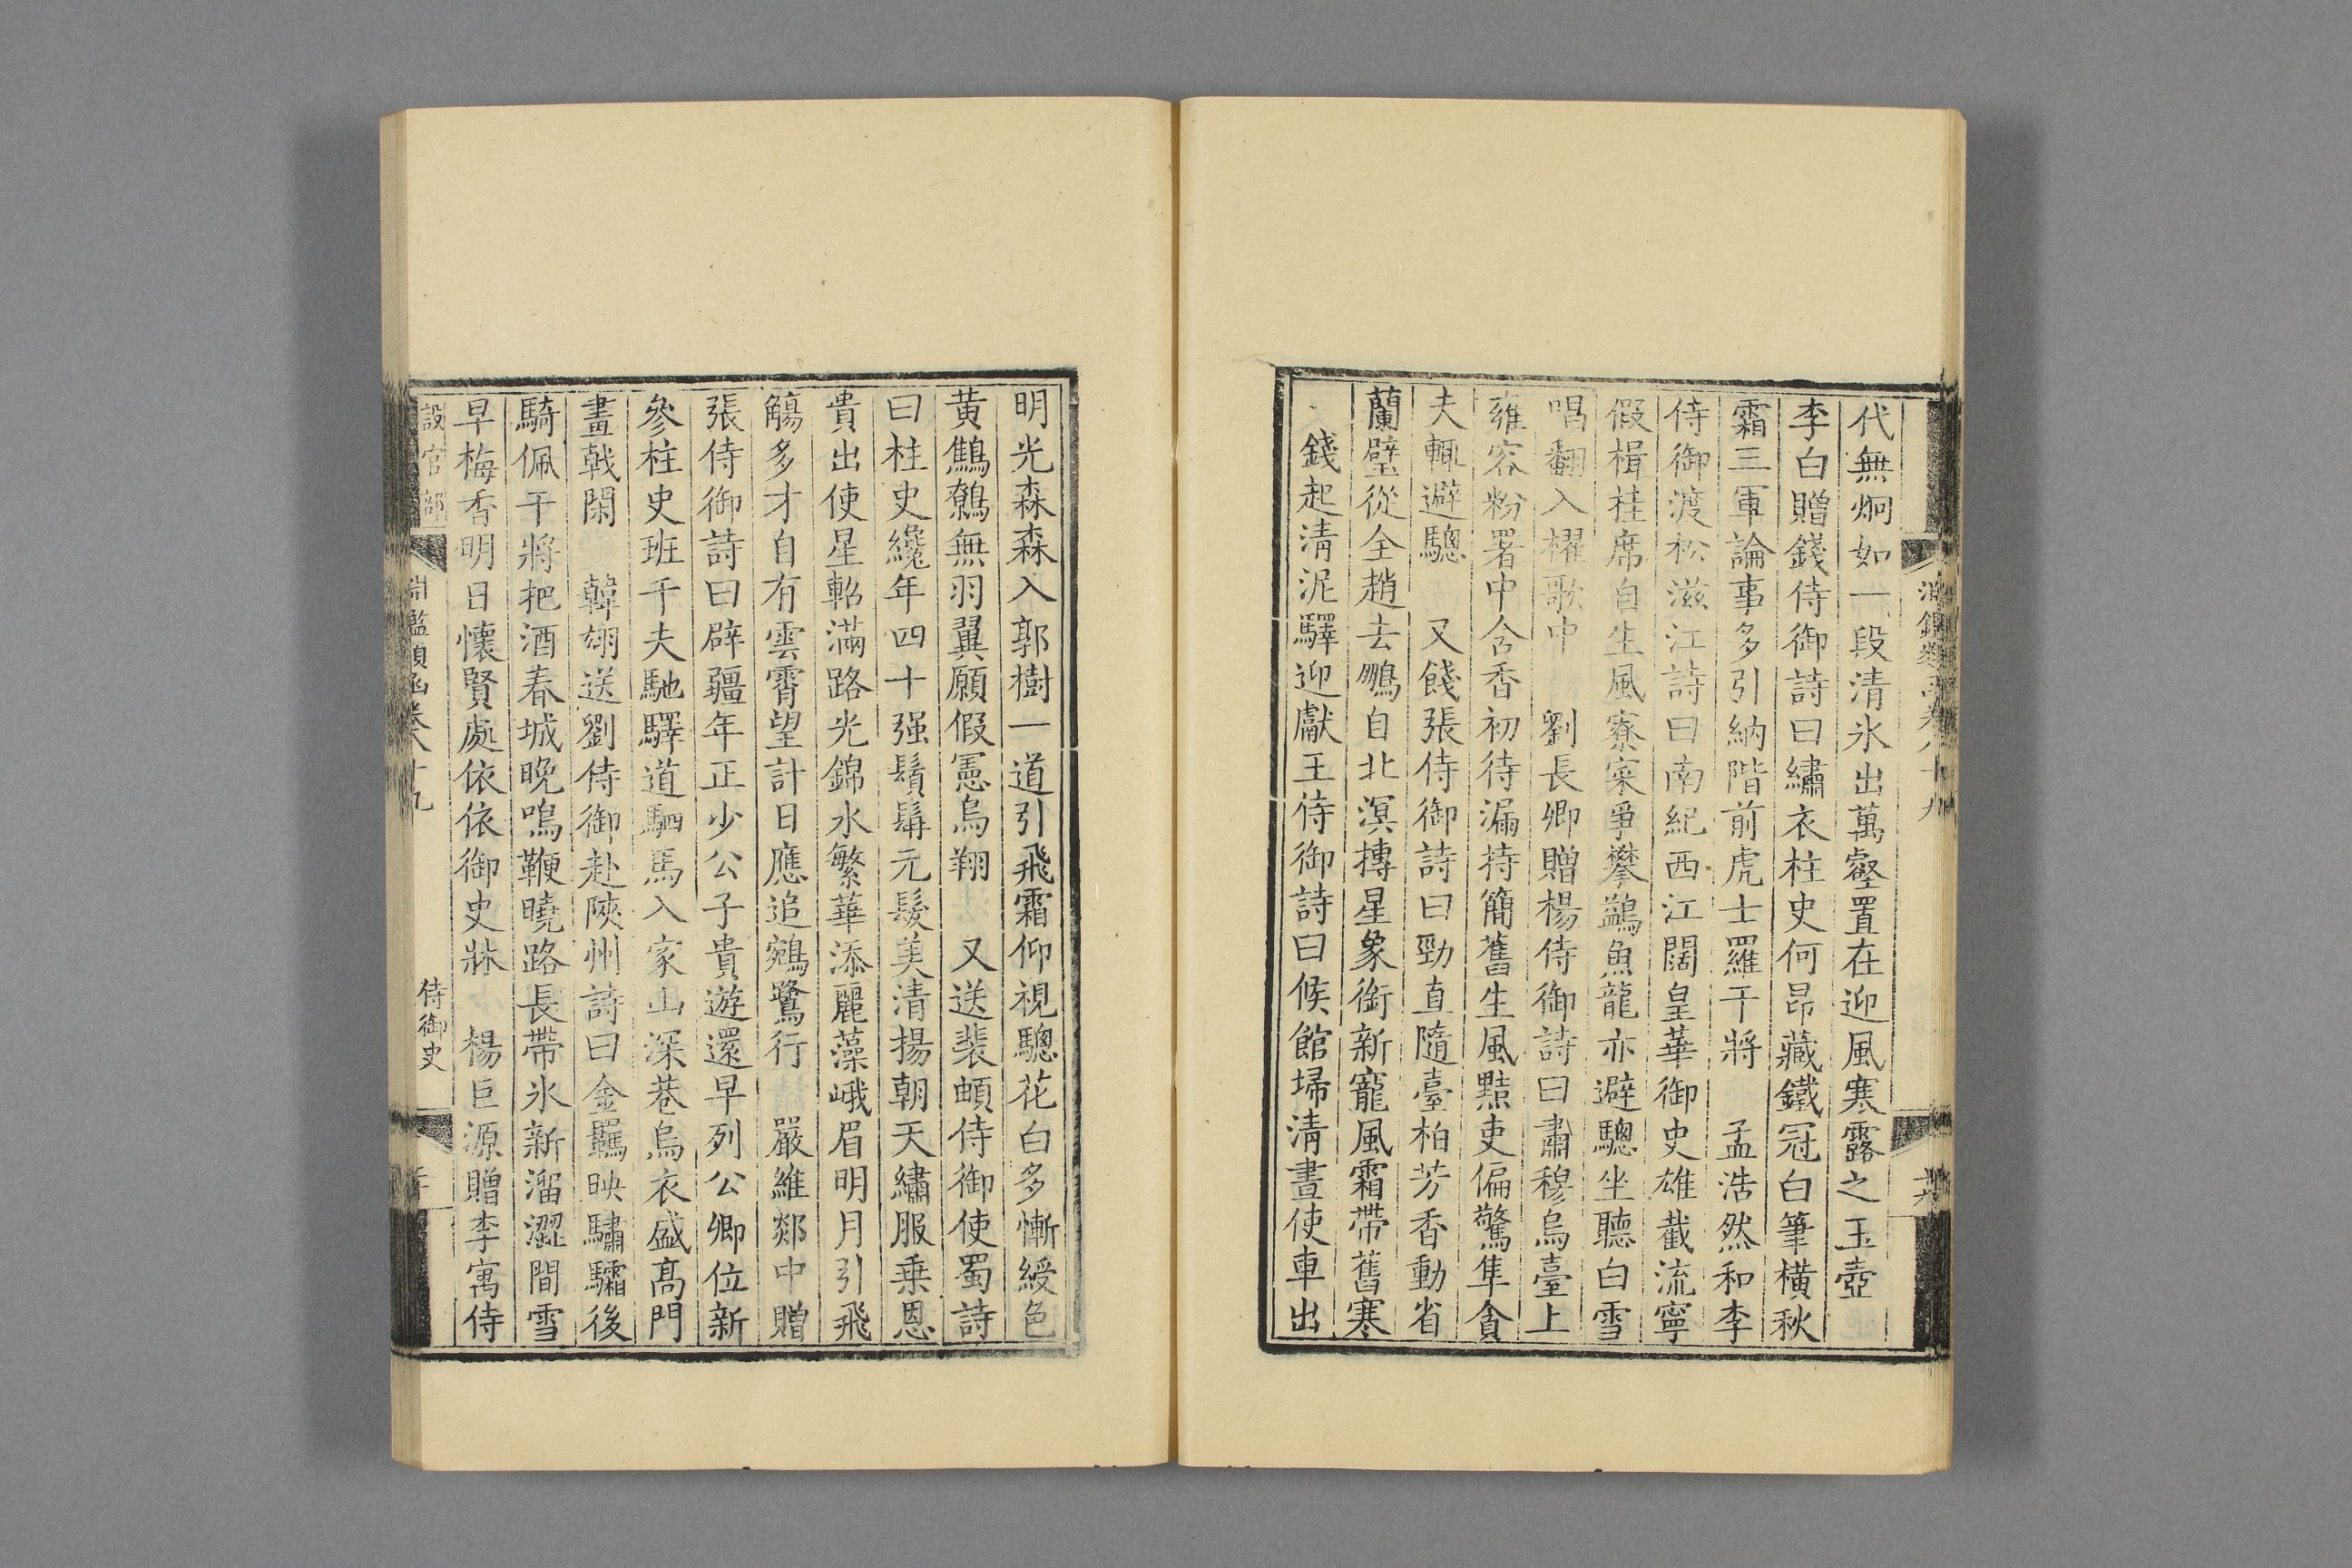 代無炯如一段清氷出萬壑置在迎風寒露之玉壺
李白贈錢侍御詩曰繡衣柱史何昂藏鐵冠白筆橫秋
霜三軍論事多引納階前虎士羅干將　孟浩然和李
侍御渡松滋江詩曰南紀西江闊皇華御史雄截流寧
假楫桂席自生風寮寀爭攀鷁魚龍亦避驄坐聽白雪
唱翻入櫂歌中　劉長卿贈楊侍御詩曰肅穆烏臺上
雍容粉署中含香初待漏持簡舊生風黠吏偏驚隼貪
夫輒避驄　又餞張侍御詩曰勁直隨臺柏芳香動省
蘭璧從全趙去鵬自北溟摶星象銜新寵風霜帶舊寒
錢起清泥驛迎獻王侍御詩曰候館埽清晝使車出
明光森森入郭樹一道引飛霜仰視驄花白多慚綬色
黄鷦鷯無羽翼願假憲烏翔　又送裴頔侍御使蜀詩
曰柱史纔年四十强鬚髯元髮美清揚朝天繡服乗恩
貴出使星軺滿路光錦水繁華添麗藻峨眉明月引飛
觴多才自有雲霄望計日應追鵷鷺行　嚴維郯中贈
張侍御詩曰辟疆年正少公子貴遊還早列公卿位新
參柱史班千夫馳驛道駟馬入家山深巷烏衣盛髙門
畫戟閑　韓翃送劉侍御赴陝州詩曰金羈映驌驦後
騎佩干將把酒春城晚鳴鞭曉路長帶氷新溜澀間雪
早梅香明日懷賢處依依御史牀　楊巨源贈李寓侍
設官部
淵鑑類函卷八十九
侍御史